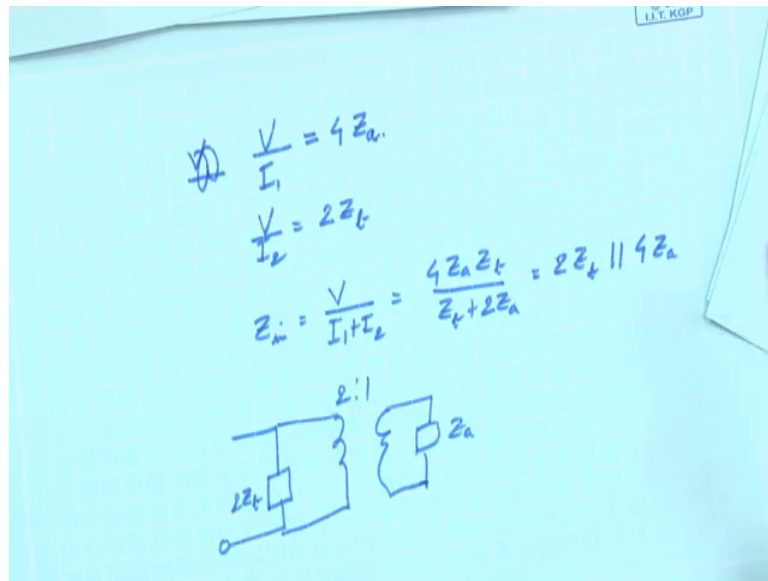 I.I.T. KGP
V/I₁ = 4Zₐ.
V/I₂ = 2Zₜ
Zᵢₙ = V/(I₁+I₂) = 4ZₐZₜ/(Zₜ+2Zₐ) = 2Zₜ || 4Zₐ
2:1
Zₐ
2Zₜ